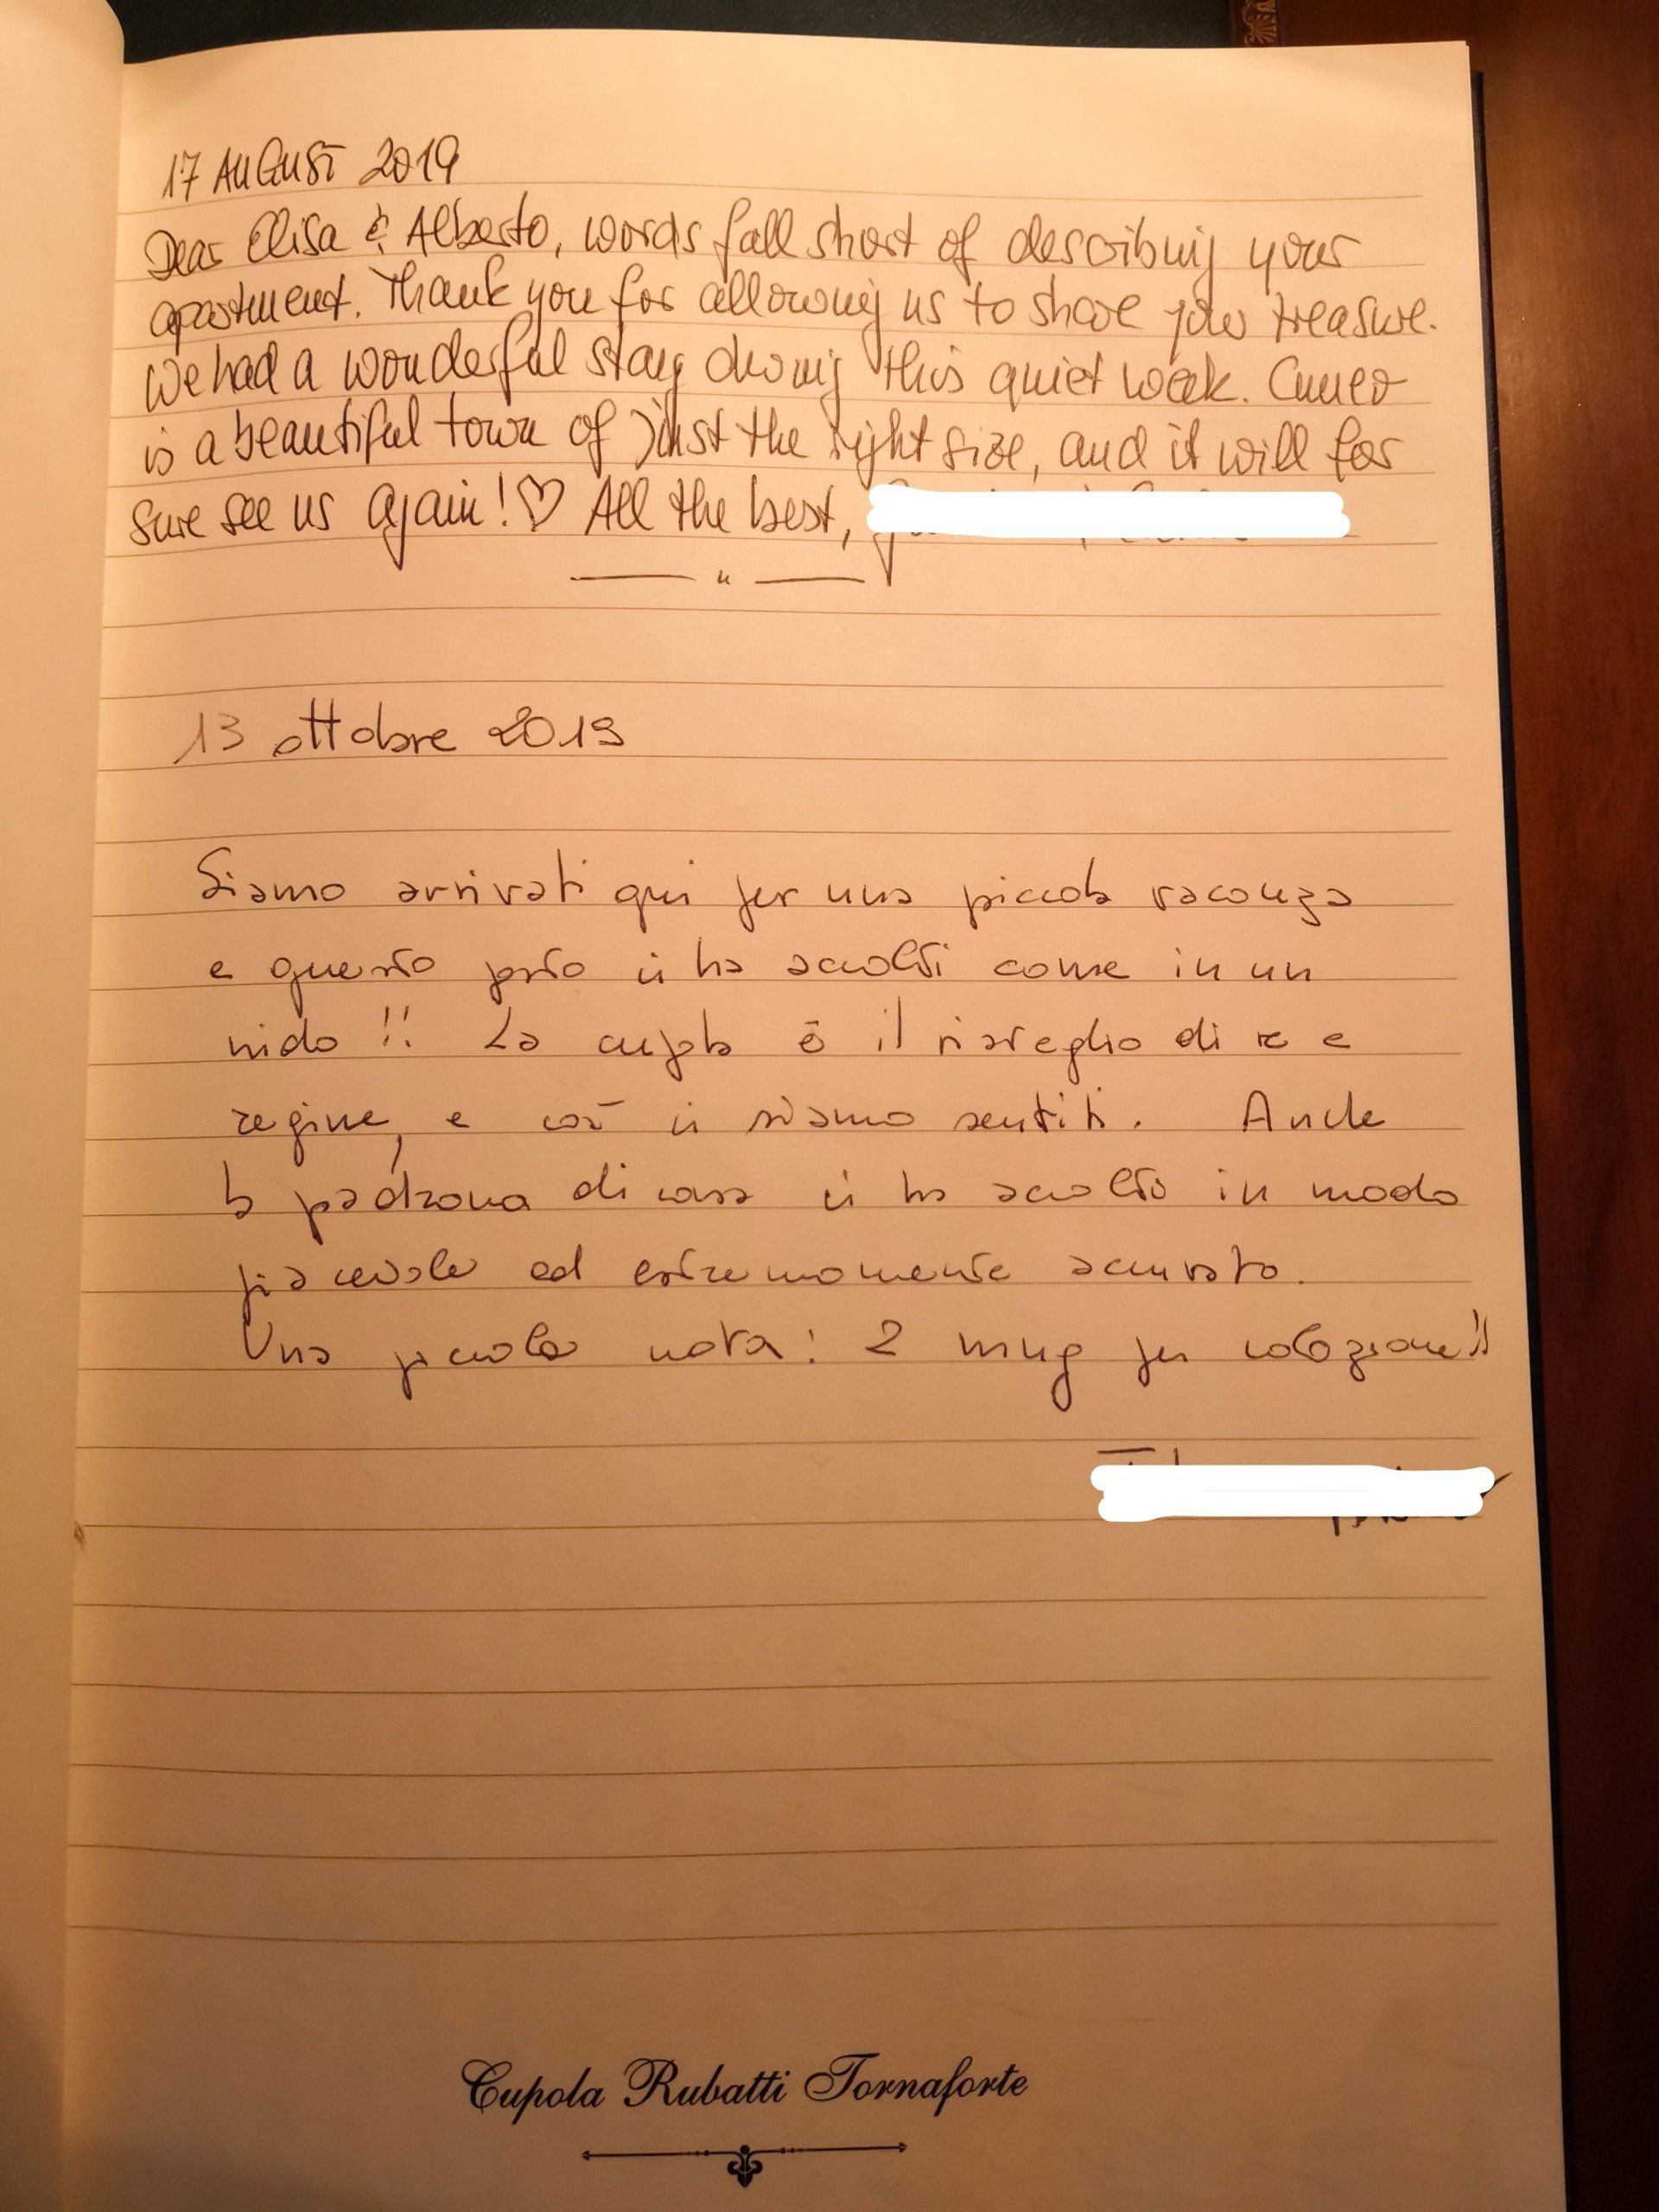 17 AUGUST 2019
Dear Elisa & Alberto, words fall short of describing your
apartment. Thank you for allowing us to share your treasure.
We had a wonderful stay during this quiet week. Cuneo
is a beautiful town of just the right size, and it will for
sure see us again! ♡ All the best,
13 ottobre 2019
Siamo arrivati qui per una piccola vacanza
e questo posto ci ha accolti come in un
nido !! La cupola è il risveglio di re e
regine, e così ci siamo sentiti. Anche
la padrona di casa ci ha accolto in modo
piacevole ed estremamente accurato.
Una piccola nota: 2 mug per colazione!!
Cupola Rubatti Tornaforte